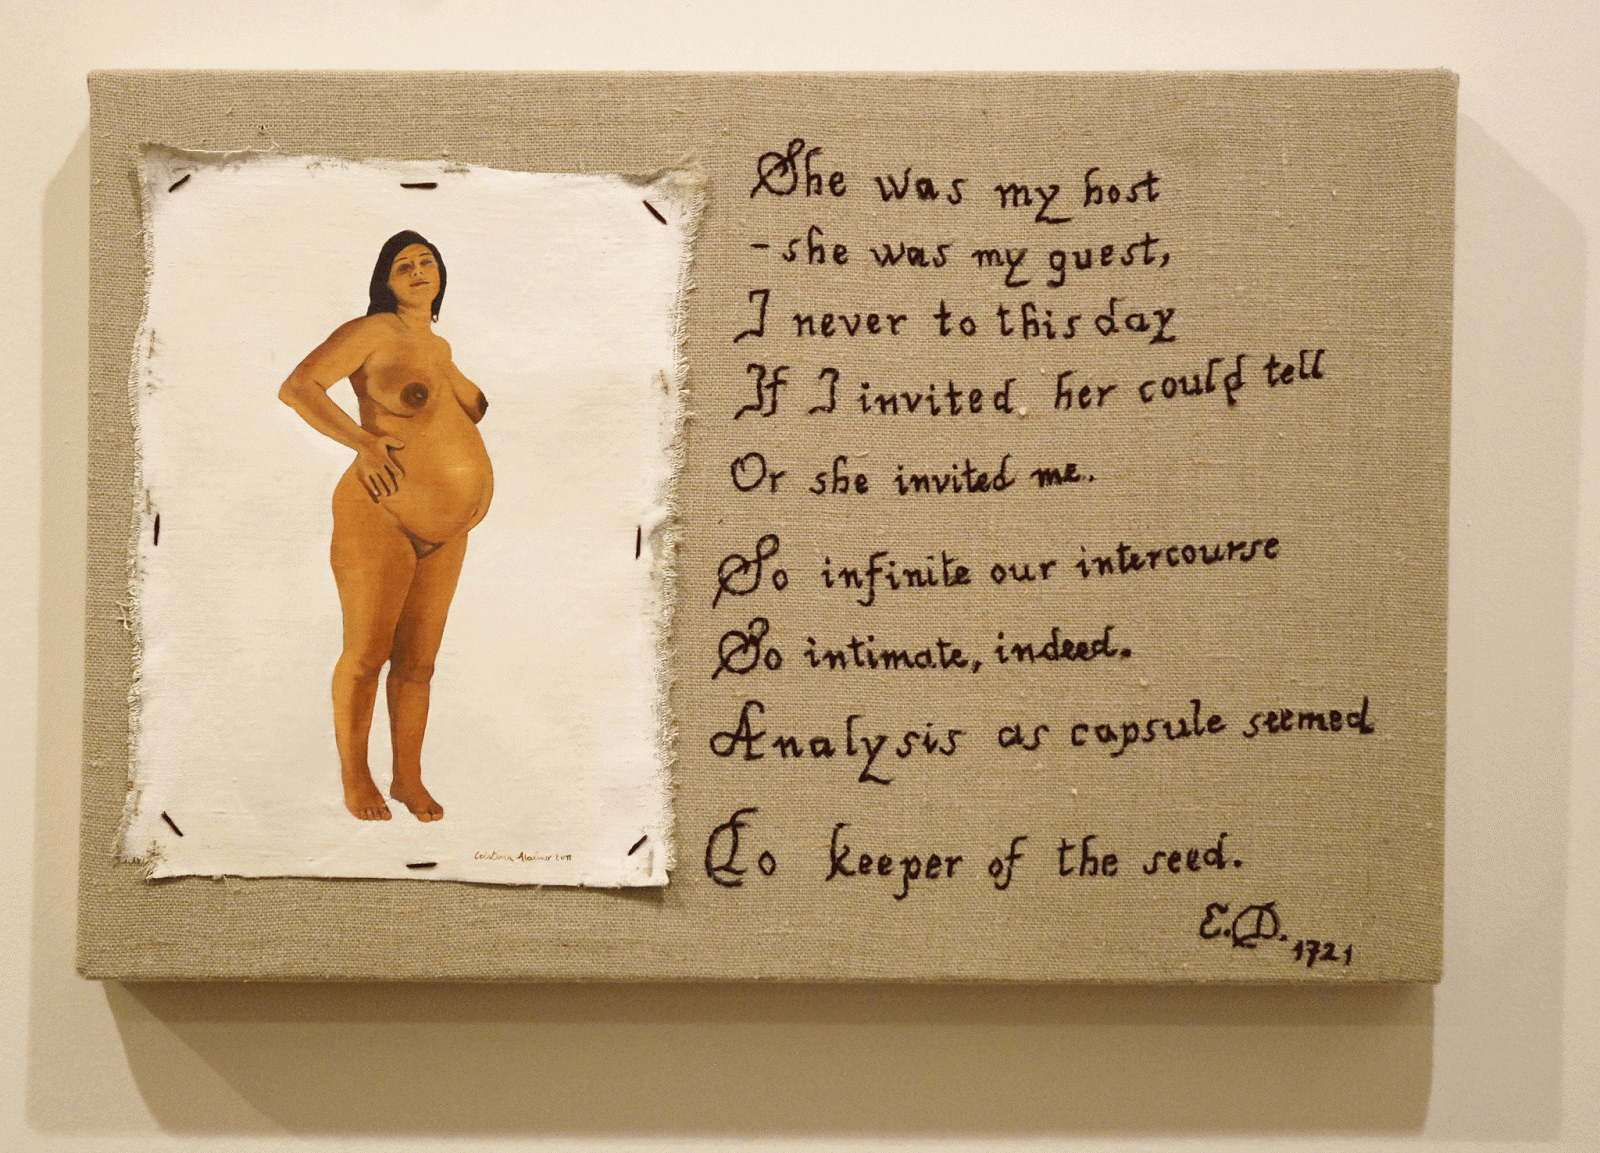 She was my host
-she was my guest,
I never to this day
If I invited her could tell
Or she invited me.
So infinite our intercourse
So intimate, indeed.
Analysis as capsule seemed
To keeper of the seed.
E.D. 1721
2011